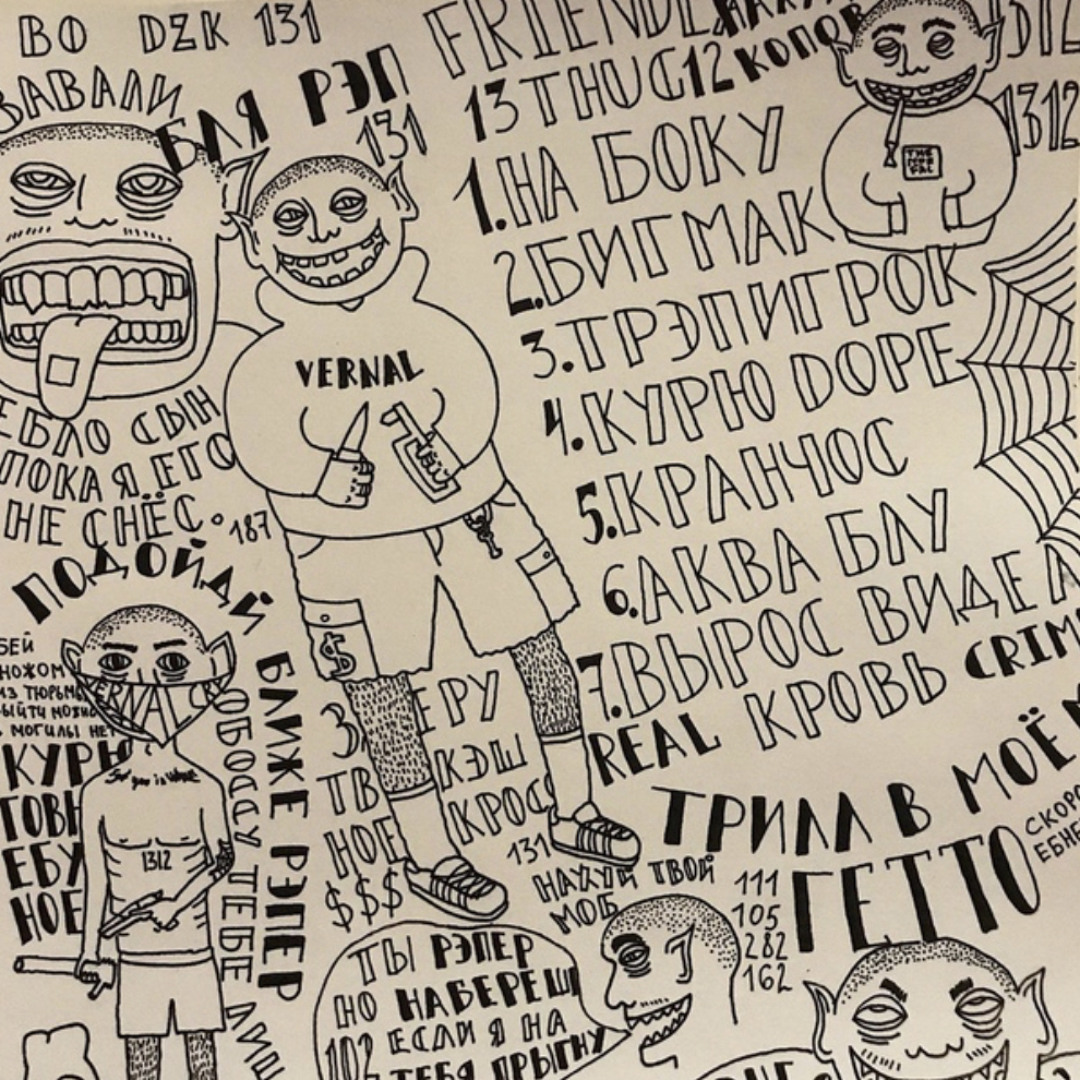 ВО DZK 131
ЗАВАЛИ
БЛЯ РЭП
131
ЕБЛО СЫН
ПОКА Я ЕГО
НЕ СНЁС. 187
FRIENDL
НАХУЙ
КОПОВ
13 THUG 12
1312
1312
1. НА БОКУ
2. БИГМАК
3. ТРЭПИГРОК
4. КУРЮ DOPE
5. КРАНЧОС
6. АКВА БЛУ
7. ВЫРОС ВИДЕЛ
REAL КРОВЬ CRIM
VERNAL
$
ПОДОЙДИ
БЛИЖЕ РЭПЕР
ОБОССУ ТЕБЕ ЛИЦ
БЕЙ
НОЖОМ
ИЗ ТЮРЬМЫ
ВЫЙТИ МОЖНО
МОГИЛЫ НЕТ
КУРЮ
ГОВН
ЕБУ
НОЕ
1312
ЕРУ
ТВ КЭШ
НОЕ КРОС
$$$ 131
НАХУЙ ТВОЙ
МОБ
111
105
282
162
ТРИЛЛ В МОЁМ
ГЕТТО
СКОРО
ЕБНЕ
ТЫ РЭПЕР
НО НАБЕРЕШЬ
102 ЕСЛИ Я НА
ТЕБЯ ПРЫГНУ